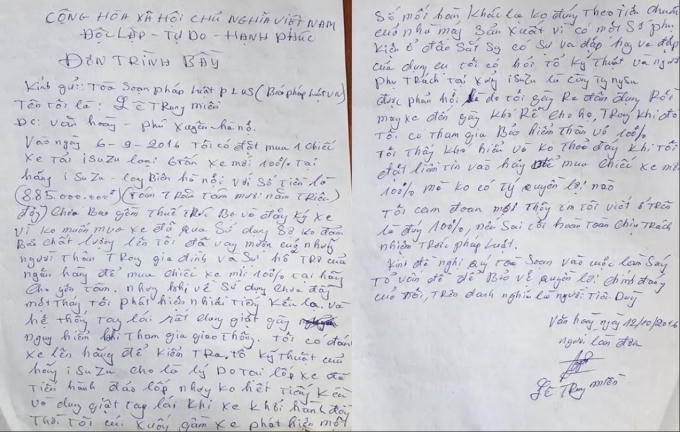 CỘNG HÒA XÃ HỘI CHỦ NGHĨA VIỆT NAM
ĐỘC LẬP - TỰ DO - HẠNH PHÚC
ĐƠN TRÌNH BẦY
Kính gửi: Tòa Soạn pháp luật PLUS (Báo pháp luật VN)
Tên tôi là: Lê Trọng Miền
ĐC: Văn hoàng - Phú Xuyên - hà nộ.
Vào ngày 6-9-2016 Tôi có đặt mua 1 chiếc
xe tải iSuZu loại 6 tấn xe mới 100% Tại
hãng iSuZu - Long Biên hà nội. Với Số Tiền là
(885.000.000đ) (Tám Trăm Tám mươi năm Triệu
đồng) Chưa Bao gồm Thuế Trước Bạ và đăng ký xe
vì ko muốn mua xe đã qua Sử dụng Sợ ko đảm
Bảo Chất lượng lên tôi đã vay mượn của những
người Thân Trong gia đình và Sự hỗ Trợ của
ngân hàng để mua chiếc xe mới 100% tại hãng
cho yên tâm. nhưng khi về Sử dụng Chưa đầy
một Tháng Tôi phát hiện nhiều Tiếng Kêu lạ. và
hệ Thống Tay lái rất dung giật gây
nguy hiểm khi Tham gia giao Thông. Tôi có đánh
xe lên hãng để kiểm Tra, tổ kỹ Thuật của
hãng iSuZu cho là lý Do Tại lốp xe đã
Tiến hành đảo lốp nhưng ko hết Tiếng Kêu
và dung giật tay lái khi xe khởi hành
Thời Tôi cúi xuống gầm xe phát hiện một
Số mối hàn khác lạ ko đúng Theo Tiêu Chuẩn
của nhà máy Sản Xuất vì có một Số phụ
kiện ở đầu Sát Si có Sự va đập hay va đập
của dụng cụ tôi có hỏi tổ kỹ Thuật và người
phụ Trách tại Xưởng iSuZu là
được phản hồi là do tôi gây Ra đâm đụng Rồi
mang xe đến gây khó Rễ Cho họ, Trong khi đó
Tôi có tham gia Bảo hiểm Thân vỏ 100%
Tôi Thấy khó hiểu vì ko Thỏa đáng khi tôi
đặt Niềm Tin vào hãng để mua chiếc xe mới
100% mà ko có Tý quyền lợi nào
Tôi cam đoan mọi Thông tin tôi viết ở Trên
là đúng 100%, nếu Sai tôi hoàn Toàn Chịu Trách
nhiệm Trước pháp luật.
Kính đề nghị quý Tòa Soạn vào cuộc làm Sáng
Tỏ vấn đề để Bảo vệ quyền lợi chính đáng
của Tôi, Trên danh nghĩa là người Tiêu Dùng
Văn hoàng ngày 12/10/2016
người làm đơn
Lê Trọng Miền